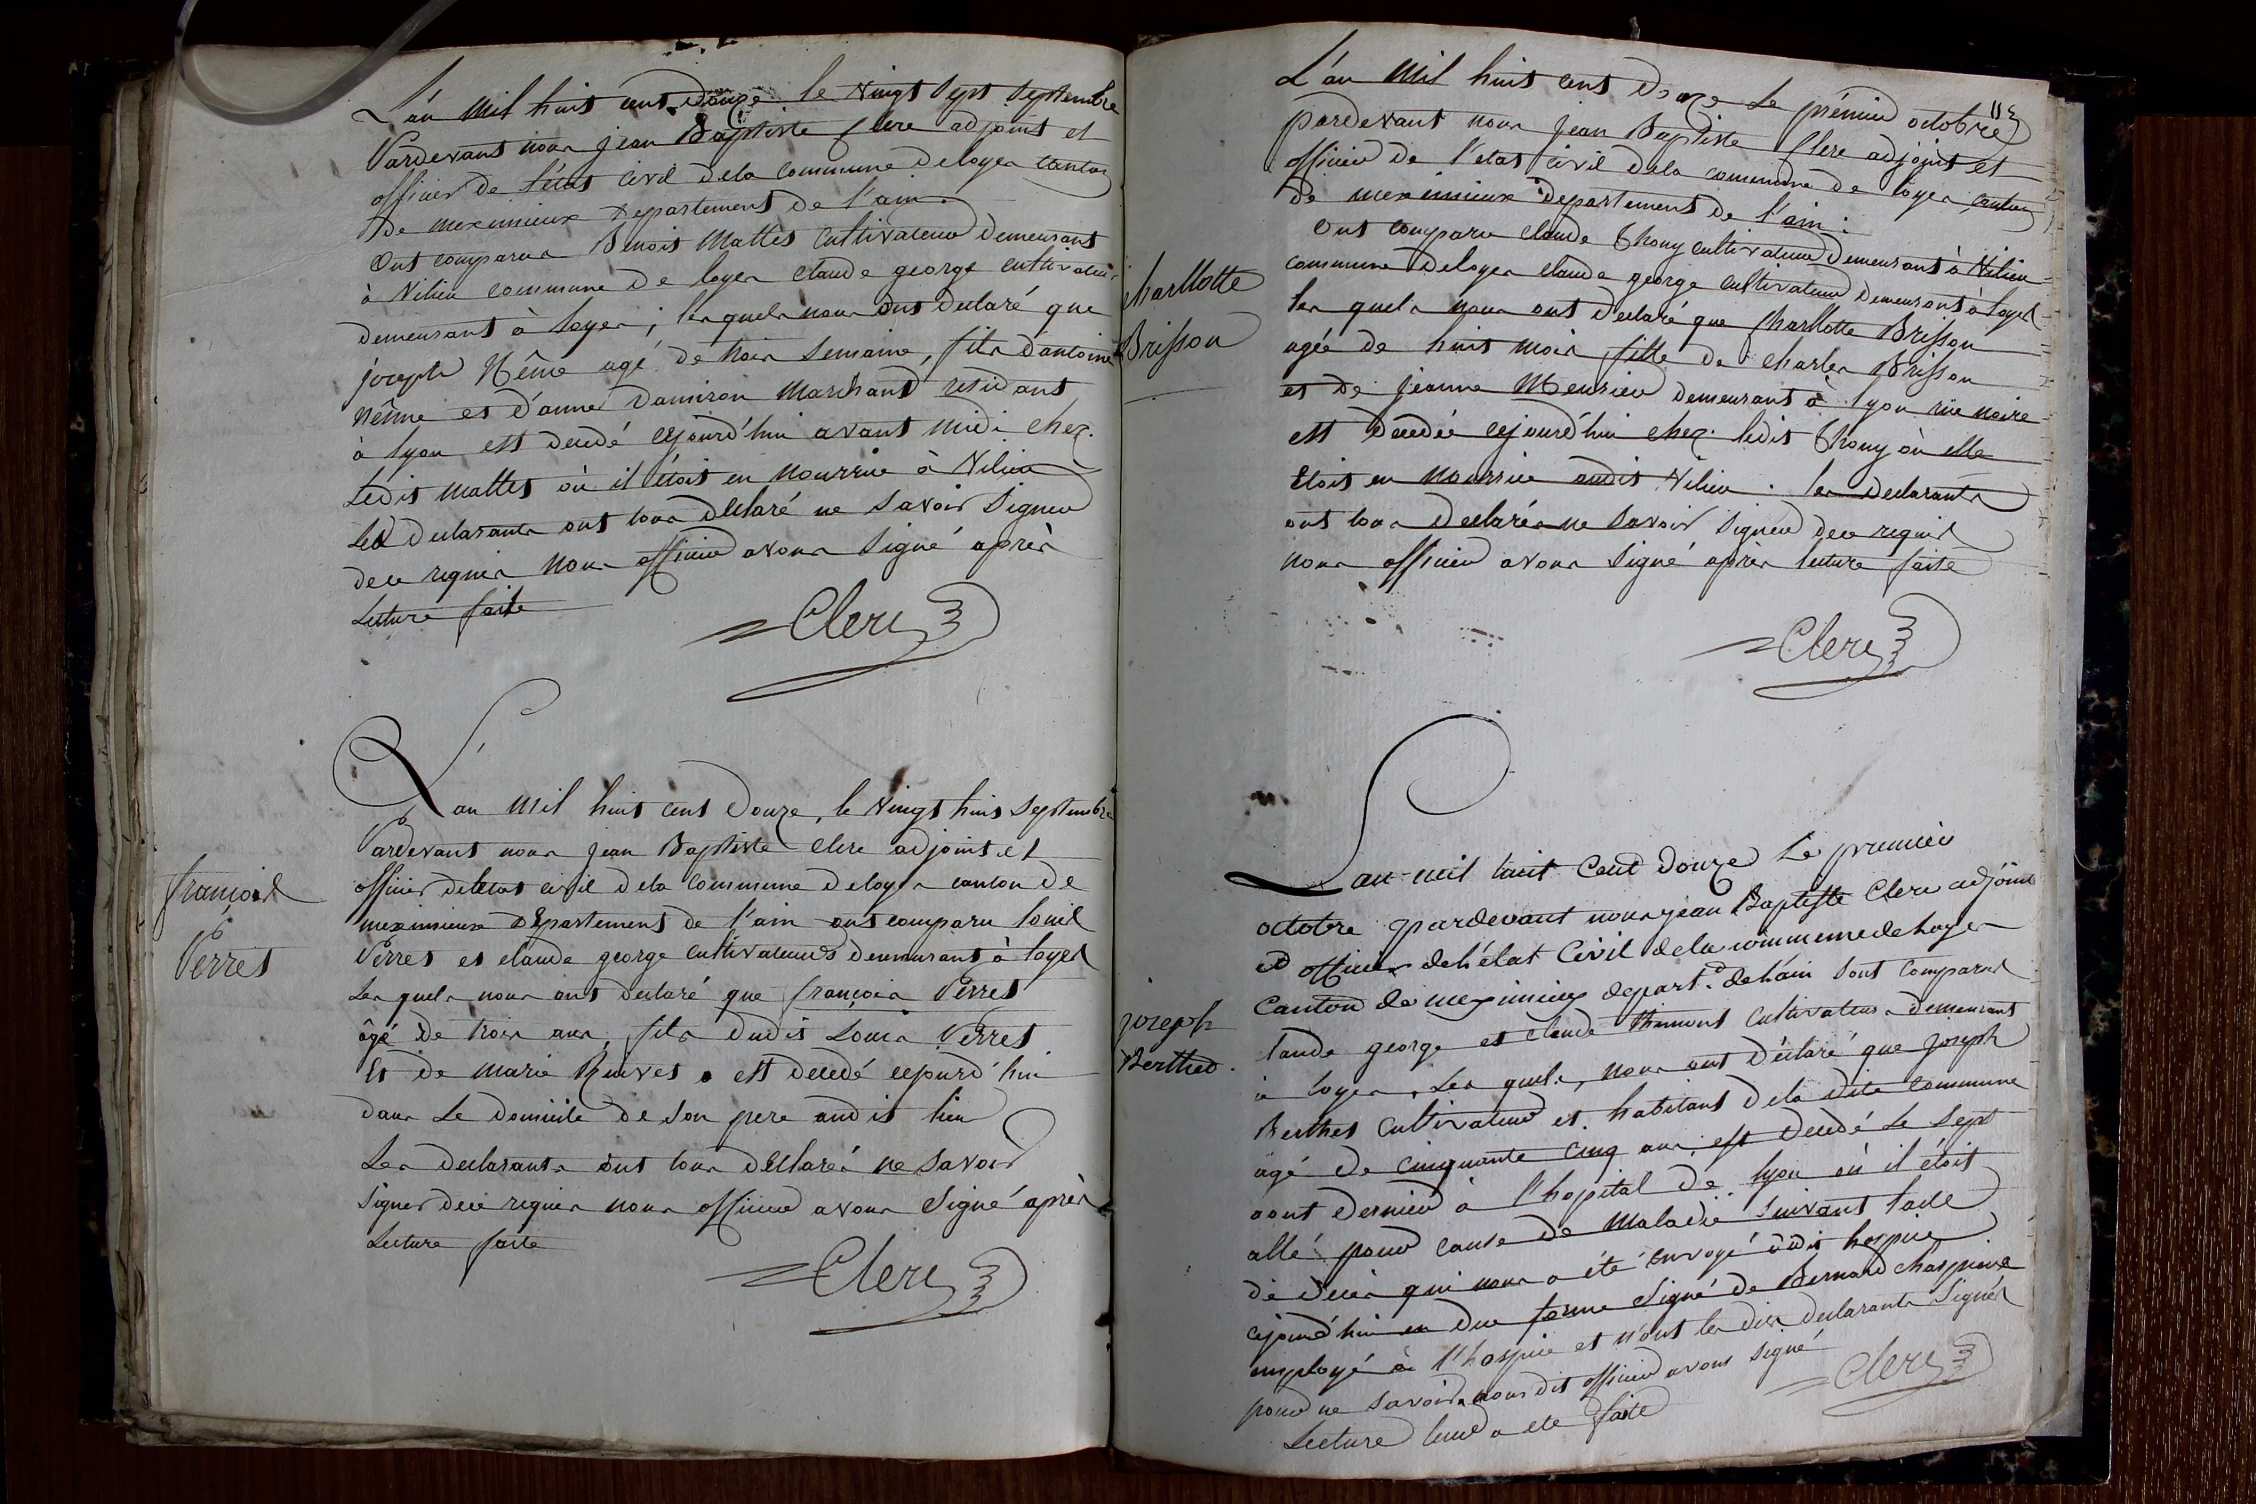 L'an mil huit cent douze le vingt sept septembre
Pardevant nous jean Baptiste Clerc adjoint et
officier de l'état civil dela commune deloyes canton
de meximieux departement de l'ain.
Ont comparus Benoit Mattes cultivateur demeurant
à Vilieu commune de loyes claude george cultivateur
demeurant à loyes; lesquels nous ont declaré que
joseph Même agé de trois semaine, fils d'antoine
même et d'anne Damiron marchand residant
à lyon est decedé cejourd'hui avant midi chez.
Ledit mattes où il étoit en nourrice à Vilieu
Les declarants ont tous declaré ne savoir signer
dece requis nous officier avons signé après
Lecture faite
Clerc
françois
Perret
L'an mil huit cent douze, le vingt huit septembre
Pardevant nous jean Baptiste clerc adjoint et
officier deletat civil dela commune deloyes canton de
meximieux département de l'ain ont comparu louis
Perret et claude george cultivateurs demeurant à loyes
Lesquels nous ont declaré que françois Perret
âgé de trois ans, fils dudit Louis Perret
Et de marie Ruivet est decedé cejourd'hui
dans le domicile de son pere audit lieu
Les declarants ont tous declarés ne savoir
signer dece requis nous officier avons signé après
Lecture faite
Clerc
114
L'an mil huit cent douze le prémier octobre
pardevant nous jean Baptiste Clerc adjoint et
officier de l'etat civil dela commune de loyes canton
de meximieux departement de l'ain:
Ont comparu claude Thony cultivateur demeurant à Vilieu
commune deloyes claude george cultivateur demeurant à loyes
lesquels nous ont declaré que charlotte Brisson
agée de huit mois fille de charles Brisson
et de jeanne Meusieu demeurant à lyon rue noire
est decedée cejourd'hui chez. ledit Thony où elle
étoit en nourrice audit Vilieu. les declarants
ont tous declarés ne savoir signer dece requis
nous officier avons signé après lecture faite
Charllotte
Brisson
Clerc
L'an mil huit cent douze Le premier
octobre pardevant nous jean Baptiste Clerc adjoint
et officier de l'état Civil dela commune de Loyes
Canton de meximieux depart.t de l'ain sont comparus
laude george et claude Thimont cultivateurs demeurant
à loyes, Les quels, nous ont déclaré que joseph
Berthet cultivateur et habitant dela dite commune
âgé de cinquante cinq ans, est decedé le sept
aout dernier à l'hopital de lyon où il étoit
allé pour cause de maladie suivant l'acte
de décès qui nous a été envoyé dudit hospice
cejourd'hui en due forme signé de Bernard chaspoine
employé à l'hospice et n'ont les dits declarants signés
pour ne savoir, nous dit officier avons signé
Lecture leur a été faite
joseph
Berthet.
Clerc